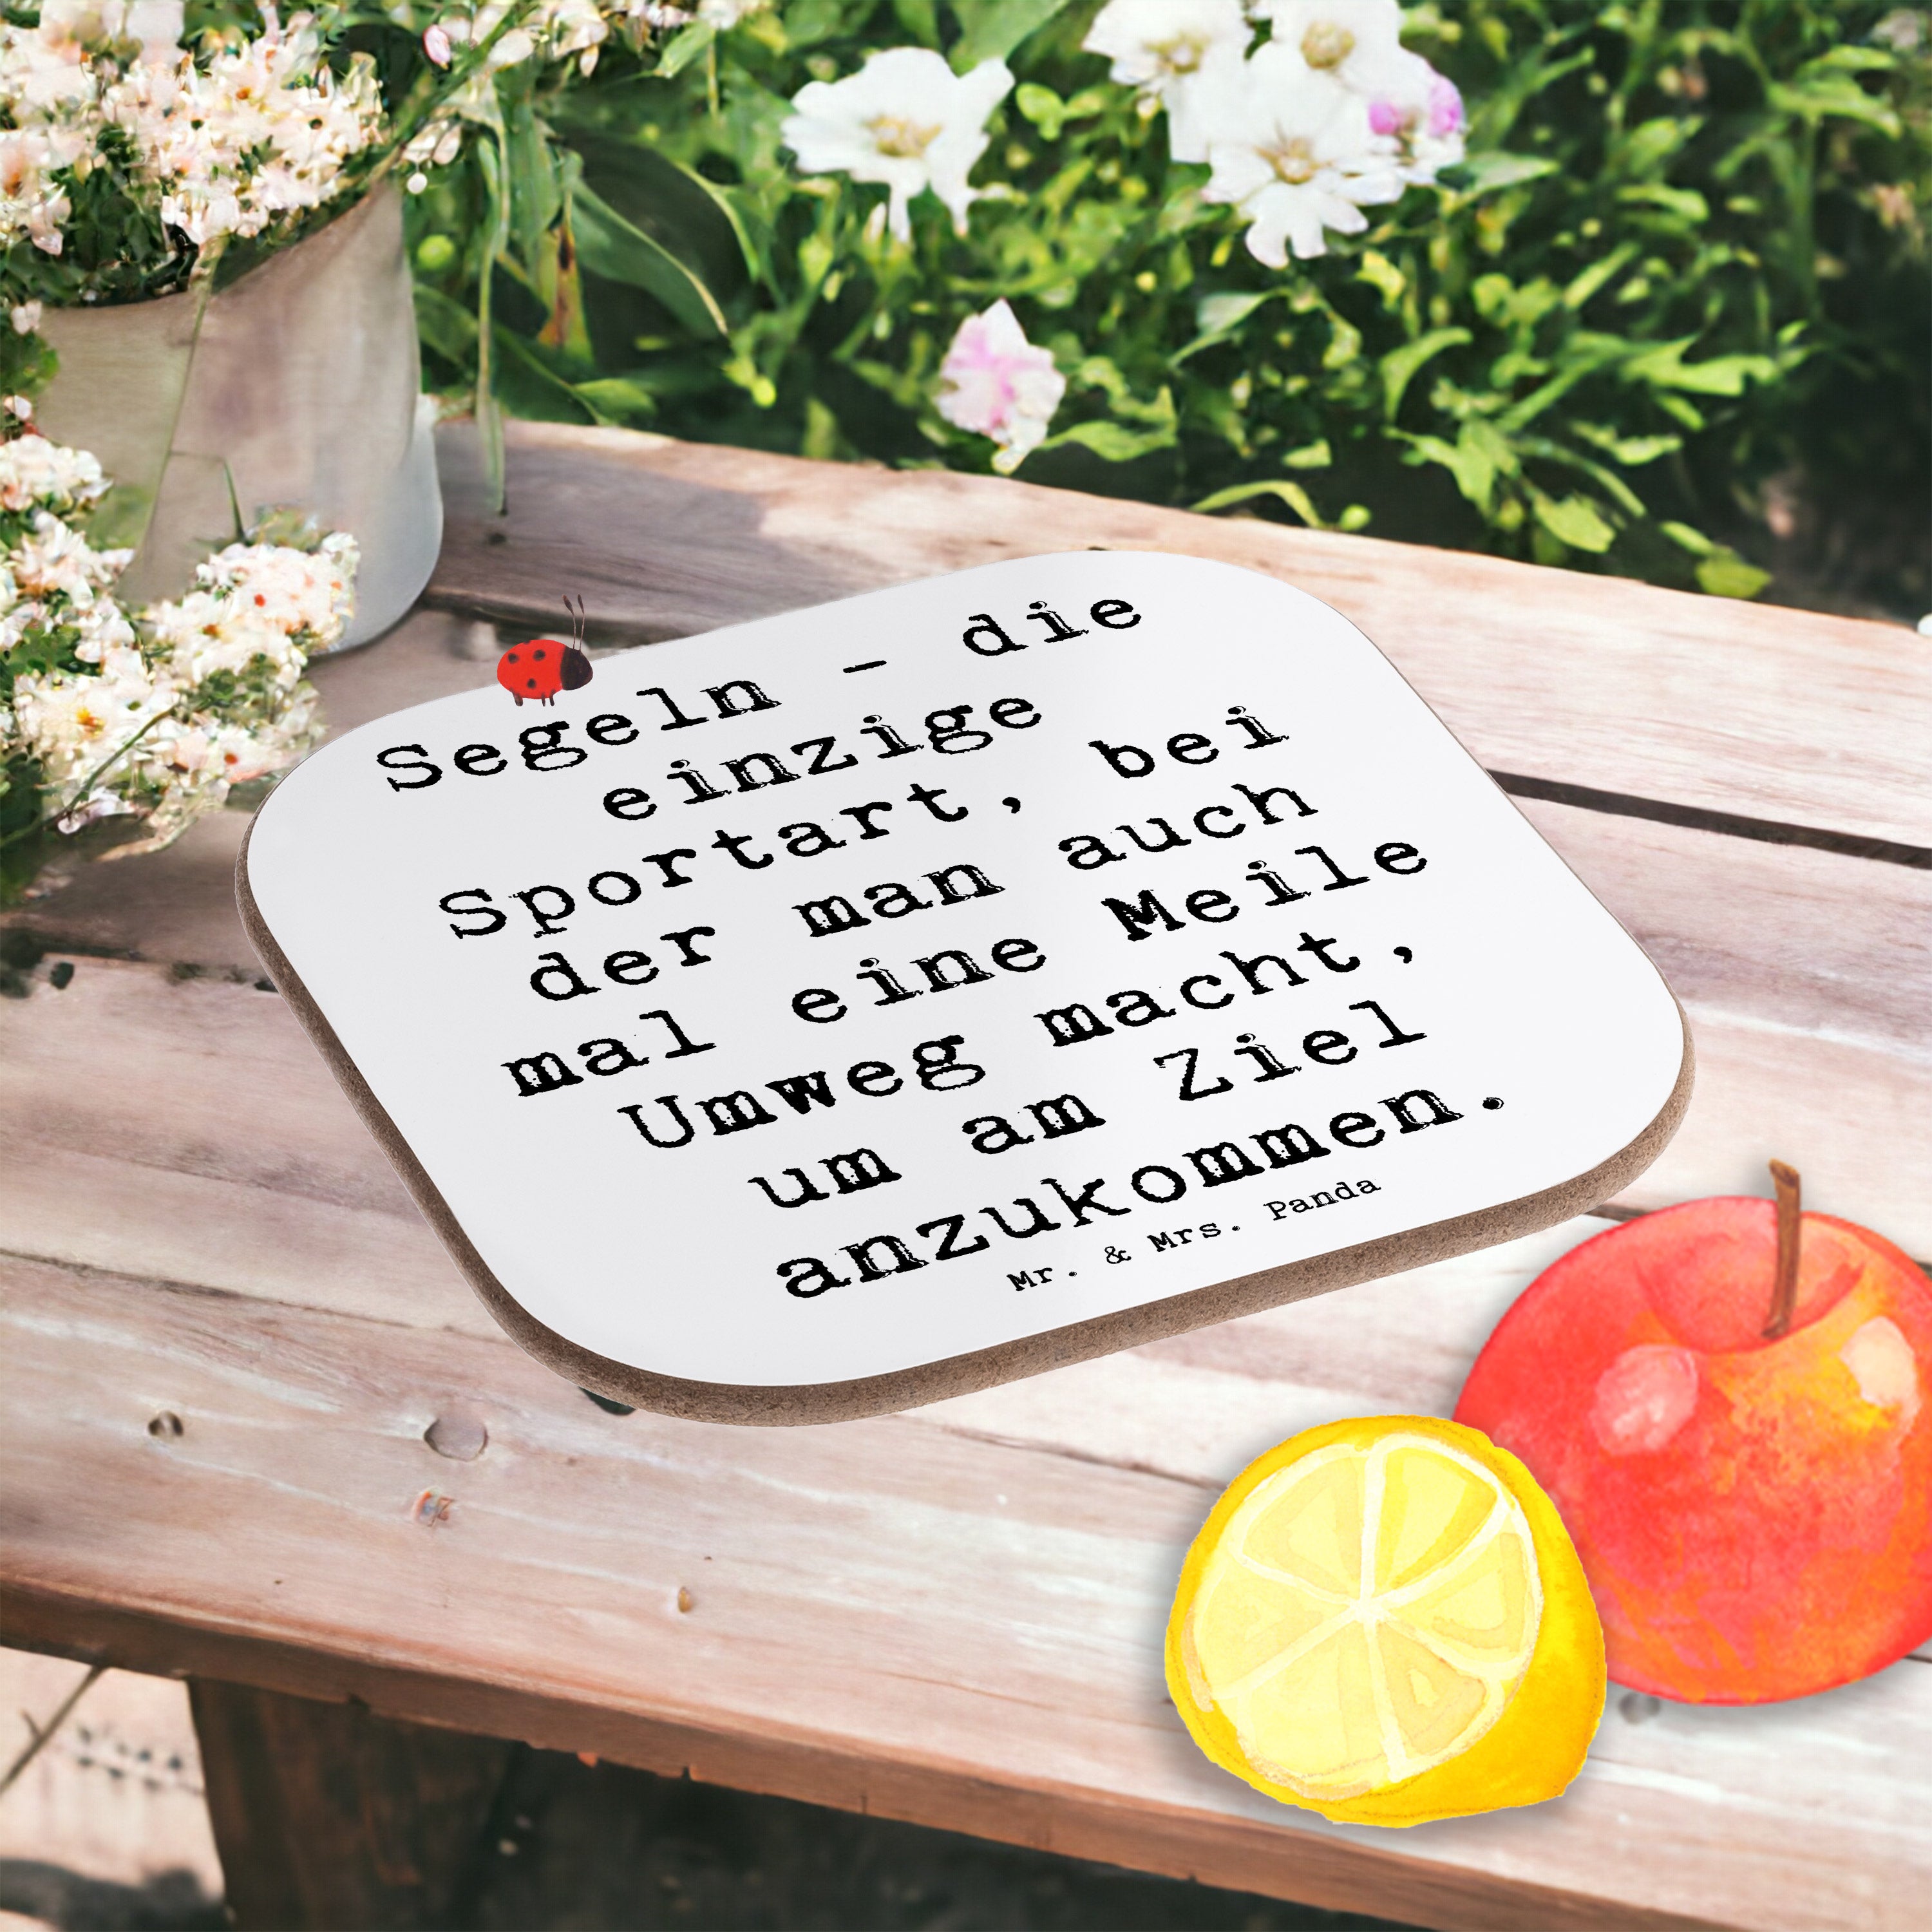 Segeln - die
einzige
Sportart, bei
der man auch
mal eine Meile
Umweg macht,
um am Ziel
anzukommen.
Mr. & Mrs. Panda